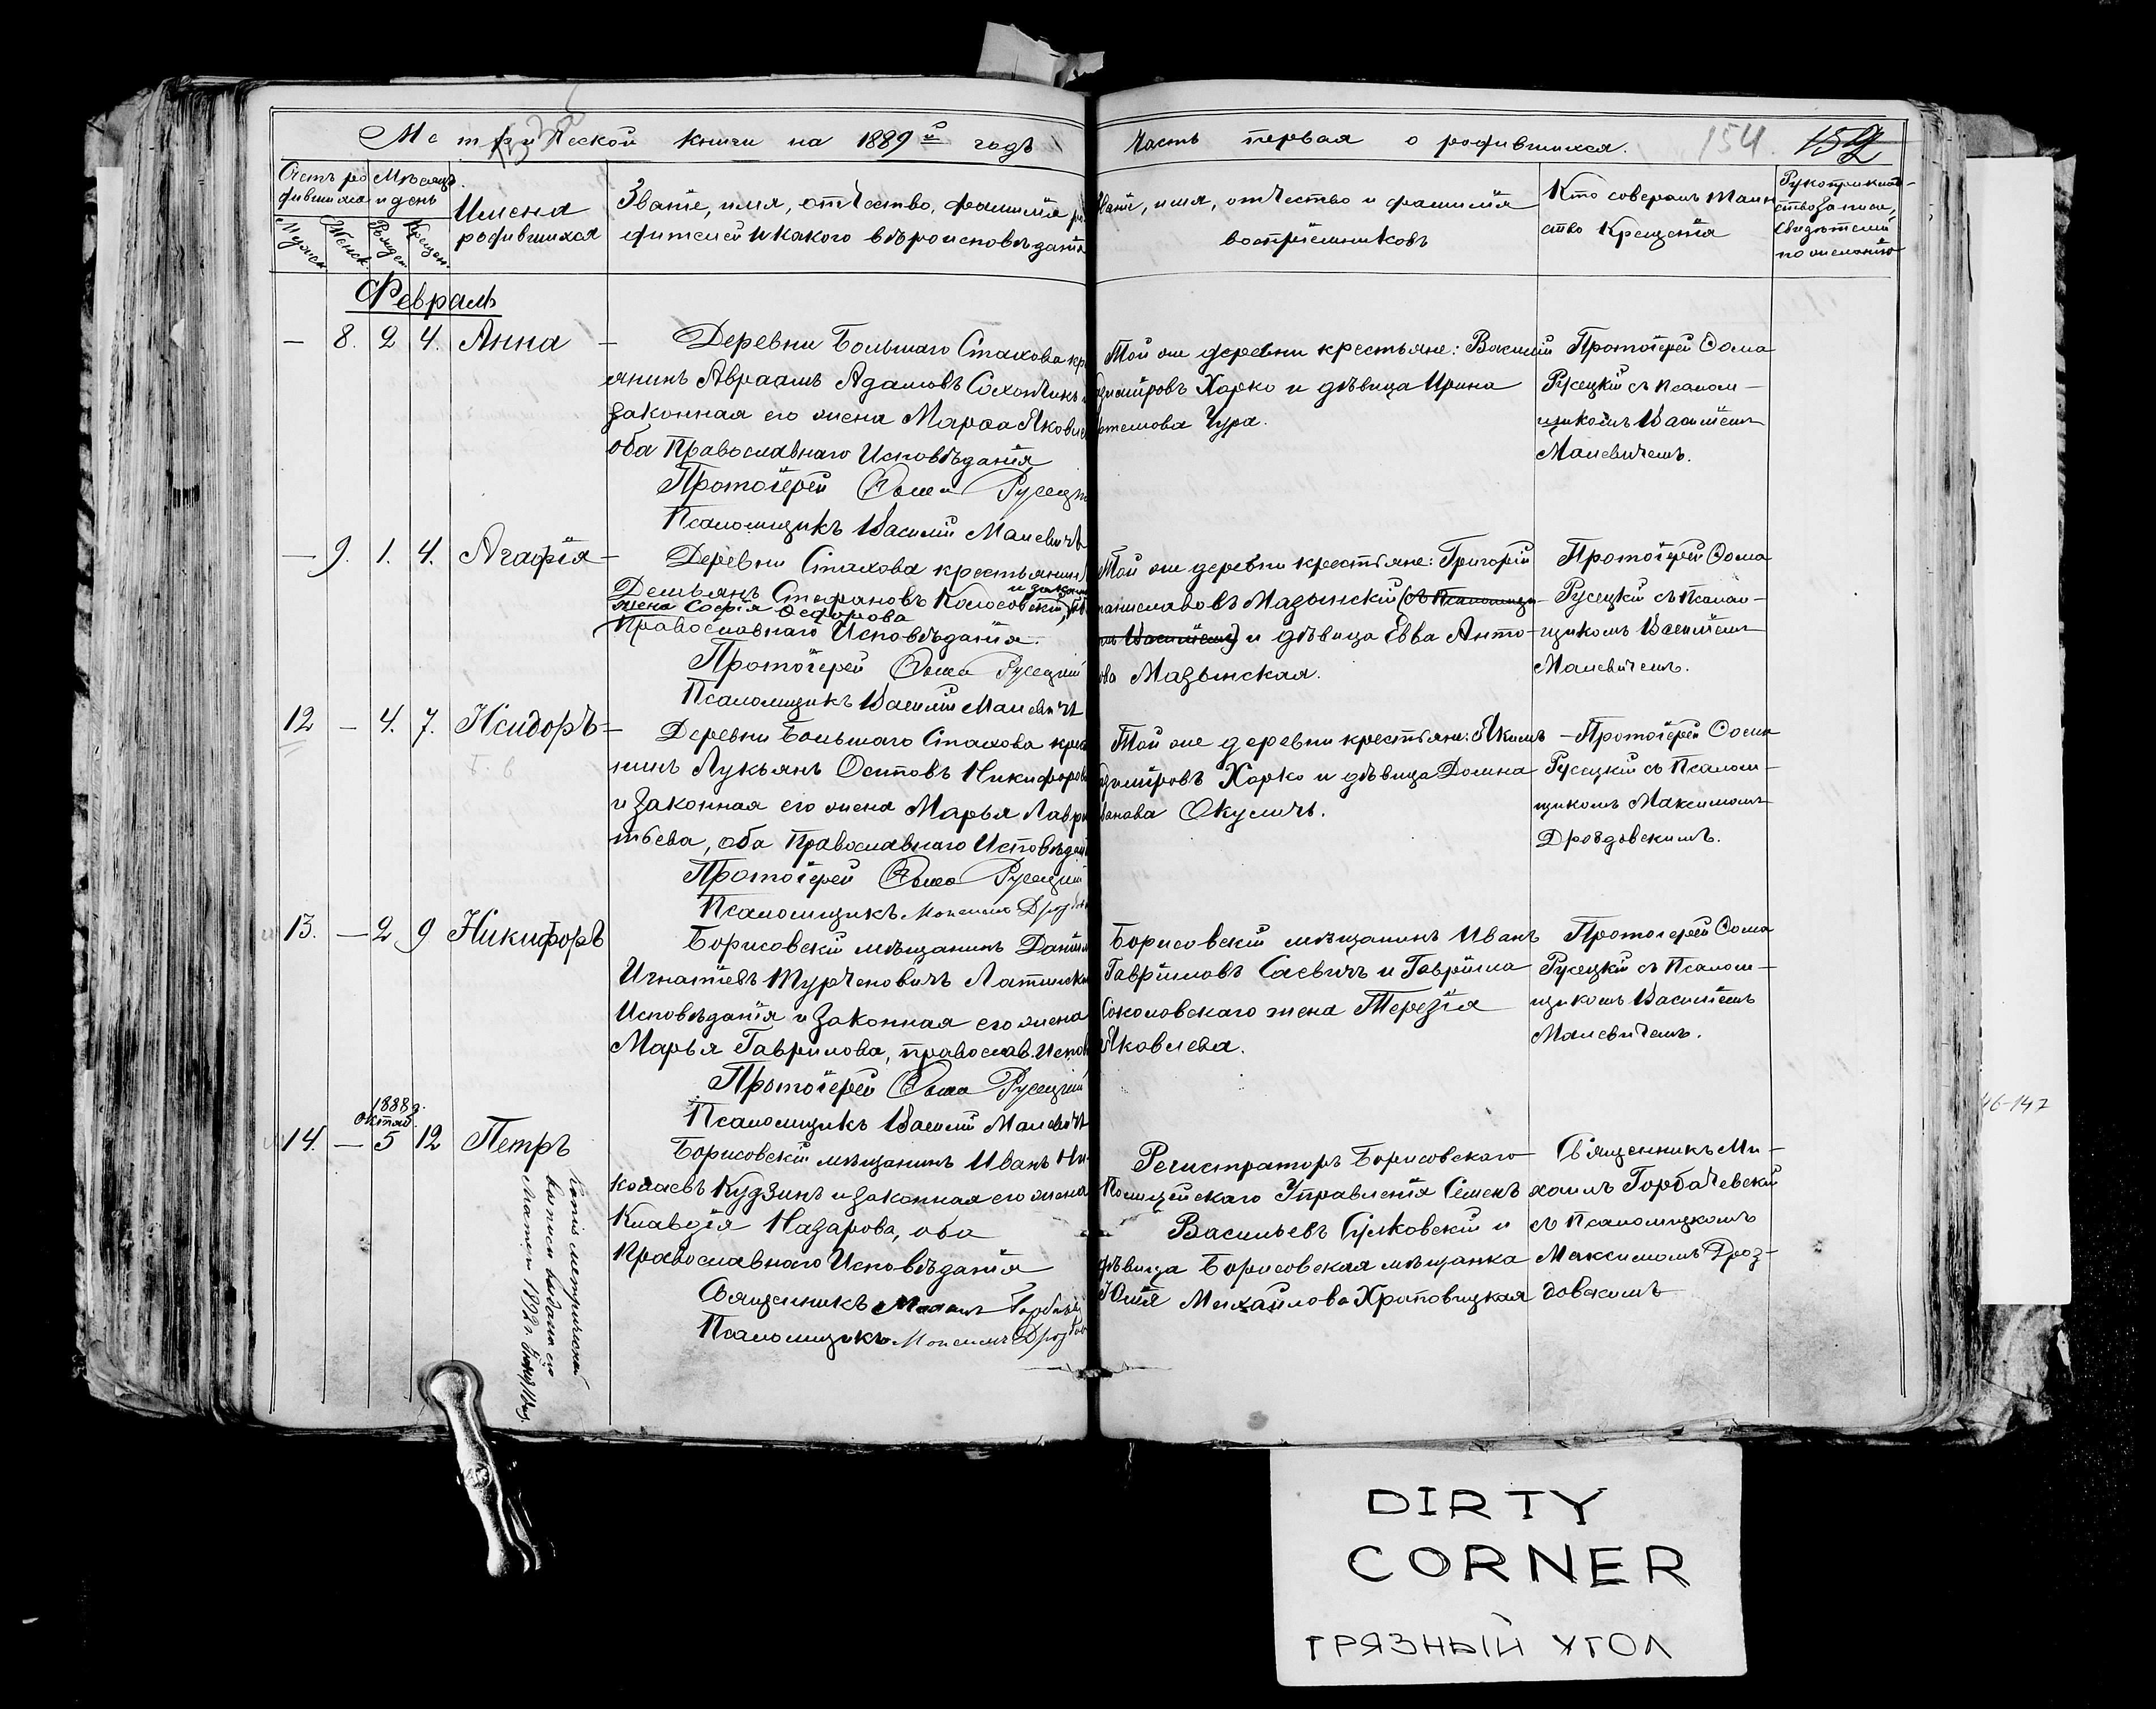 Метрической книги на 1889й годъ
Часть первая о родившихся.
154
152
Счетъ ро
дившихся
Мѣсяцъ
и день
Мужеск.
Женск.
Рожден.
Крещен.
Имена
родившихся
Званіе, имя, отчество, фамилія ро
дителей и какого вѣроисповѣданія
Званіе, имя, отчество и фамилія
воспріемниковъ
Кто совершалъ таин
ство Крещенія
Рукоприклад-
ство
свидѣтелей
по желанію
Февраль
— 8. 2 4. Анна —
Деревни Большаго Стахова кр
янинъ Авраамъ Адамовъ Сохончикъ и
законная его жена Марѳа Яковле
оба Православнаго Исповѣданія
Протоіерей Ѳома Русецкій
Псаломщикъ Василій Малевичъ
Той же деревни крестьяне: Василій
димировъ Харко и дѣвица Ирина
ртемова Чура.
Протоіерей Ѳома
Русецкій съ Псалом-
щикомъ Василіемъ
Малевичемъ.
— 9. 1. 4. Агафія —
Деревни Стахова крестьянинъ
Демьянъ Стефановъ Колосовскій,
и закон
жена Софія Ѳедорова
Православнаго Исповѣданія.
Протоіерей Ѳома Русецкій
Псаломщикъ Василій Малевичъ
Той же деревни крестьяне: Григорій
таниславовъ Мазынскій (съ Псаломщи-
Василіемъ) и дѣвица Евва Анто-
ова Мазынская.
Протоіерей Ѳома
Русецкій съ Псалом-
щикомъ Василіемъ
Малевичемъ.
12 — 4. 7. Исидоръ —
Деревни Большаго Стахова крес
нинъ Лукьянъ Осиповъ Никифоров
и законная его жена Марья Лавре
тьева, оба Православнаго Исповѣдан
Протоіерей Ѳома Русецкій
Псаломщикъ Максимъ Дроздов
Той же деревни крестьяне: Якимъ
димировъ Харко и дѣвица Домна
ванова Окуличъ.
— Протоіерей Ѳома
Русецкій съ Псалом-
щикомъ Максимомъ
Дроздовскимъ.
13. — 2 9 Никифоръ
Борисовскій мѣщанинъ Даніил
Игнатіевъ Турченовичъ Латинска
Исповѣданія и законная его жена
Марья Гаврилова, православ. Испов
Протоіерей Ѳома Русецкій
Псаломщикъ Василій Малевичъ
Борисовскій мѣщанинъ Иванъ
Гавріиловъ Саевичъ и Гавріила
Соколовскаго жена Терезія
Яковлева.
Протоіерей Ѳома
Русецкій съ Псалом-
щикомъ Василіемъ
Малевичемъ.
1888 г.
октяб.
14. — 5 12 Петръ
Копія метрической
выписи выдана
1892 г.
Борисовскій мѣщанинъ Иванъ Ни-
колаевъ Кудзинъ и законная его жена
Клавдія Назарова, оба
Православнаго Исповѣданія
Священникъ Михаилъ Горбачевскій
Псаломщикъ Максимъ Дроздов
Регистраторъ Борисовскаго
Полицейскаго Управленія Семенъ
Васильевъ Сулковскій и
дѣвица Борисовская мѣщанка
Юлія Михайлова Хроповицкая
Священникъ Ми-
хаилъ Горбачевскій
съ псаломщикомъ
Максимомъ Дроз-
довскимъ
46-147
DIRTY
CORNER
ГРЯЗНЫЙ УГОЛ